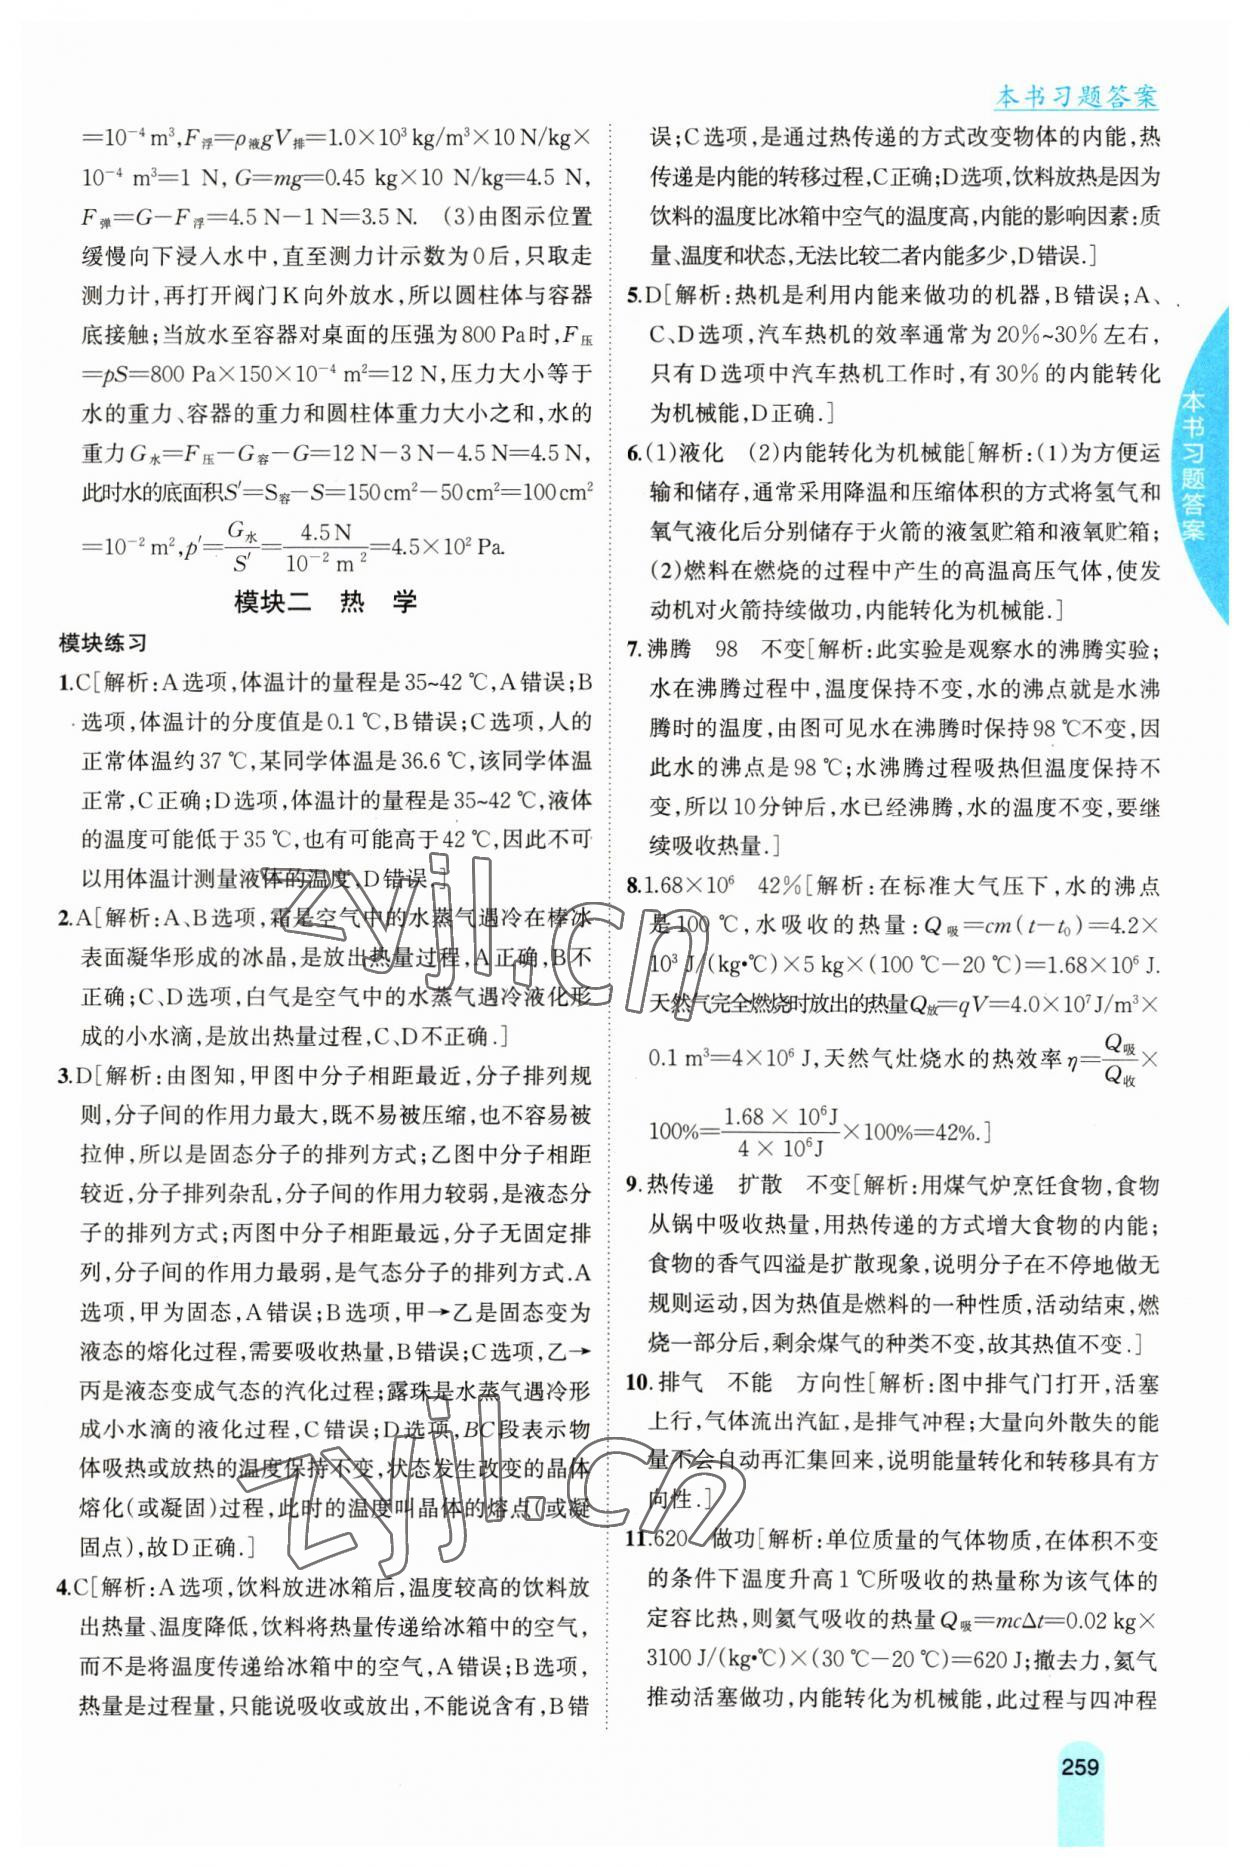 本书习题答案
=10⁻⁴ m³,F浮=ρ液gV排=1.0×10³ kg/m³×10 N/kg×
10⁻⁴ m³=1 N, G=mg=0.45 kg×10 N/kg=4.5 N,
F弹=G-F浮=4.5 N-1 N=3.5 N. (3)由图示位置
缓慢向下浸入水中,直至测力计示数为0后,只取走
测力计,再打开阀门K向外放水,所以圆柱体与容器
底接触;当放水至容器对桌面的压强为800 Pa时,F压
=pS=800 Pa×150×10⁻⁴ m²=12 N,压力大小等于
水的重力、容器的重力和圆柱体重力大小之和,水的
重力G水=F压-G容-G=12 N-3 N-4.5 N=4.5 N,
此时水的底面积S′=S容-S=150 cm²-50 cm²=100 cm²
=10⁻² m²,p′=G水/S′=4.5 N/10⁻² m²=4.5×10² Pa.
模块二 热 学
模块练习
1.C[解析:A选项,体温计的量程是35~42 ℃,A错误;B
选项,体温计的分度值是0.1 ℃,B错误;C选项,人的
正常体温约37 ℃,某同学体温是36.6 ℃,该同学体温
正常,C正确;D选项,体温计的量程是35~42 ℃,液体
的温度可能低于35 ℃,也有可能高于42 ℃,因此不可
以用体温计测量液体的温度,D错误.]
2.A[解析:A、B选项,霜是空气中的水蒸气遇冷在棒冰
表面凝华形成的冰晶,是放出热量过程,A正确,B不
正确;C、D选项,白气是空气中的水蒸气遇冷液化形
成的小水滴,是放出热量过程,C、D不正确.]
3.D[解析:由图知,甲图中分子相距最近,分子排列规
则,分子间的作用力最大,既不易被压缩,也不容易被
拉伸,所以是固态分子的排列方式;乙图中分子相距
较近,分子排列杂乱,分子间的作用力较弱,是液态分
子的排列方式;丙图中分子相距最远,分子无固定排
列,分子间的作用力最弱,是气态分子的排列方式.A
选项,甲为固态,A错误;B选项,甲→乙是固态变为
液态的熔化过程,需要吸收热量,B错误;C选项,乙→
丙是液态变成气态的汽化过程;露珠是水蒸气遇冷形
成小水滴的液化过程,C错误;D选项,BC段表示物
体吸热或放热的温度保持不变,状态发生改变的晶体
熔化(或凝固)过程,此时的温度叫晶体的熔点(或凝
固点),故D正确.]
4.C[解析:A选项,饮料放进冰箱后,温度较高的饮料放
出热量、温度降低,饮料将热量传递给冰箱中的空气,
而不是将温度传递给冰箱中的空气,A错误;B选项,
热量是过程量,只能说吸收或放出,不能说含有,B错
误;C选项,是通过热传递的方式改变物体的内能,热
传递是内能的转移过程,C正确;D选项,饮料放热是因为
饮料的温度比冰箱中空气的温度高,内能的影响因素:质
量、温度和状态,无法比较二者内能多少,D错误.]
5.D[解析:热机是利用内能来做功的机器,B错误;A、
C、D选项,汽车热机的效率通常为20%~30%左右,
只有D选项中汽车热机工作时,有30%的内能转化
为机械能,D正确.]
6.(1)液化 (2)内能转化为机械能[解析:(1)为方便运
输和储存,通常采用降温和压缩体积的方式将氢气和
氧气液化后分别储存于火箭的液氢贮箱和液氧贮箱;
(2)燃料在燃烧的过程中产生的高温高压气体,使发
动机对火箭持续做功,内能转化为机械能.]
7.沸腾 98 不变[解析:此实验是观察水的沸腾实验;
水在沸腾过程中,温度保持不变,水的沸点就是水沸
腾时的温度,由图可见水在沸腾时保持98 ℃不变,因
此水的沸点是98 ℃;水沸腾过程吸热但温度保持不
变,所以10分钟后,水已经沸腾,水的温度不变,要继
续吸收热量.]
8.1.68×10⁶ 42%[解析:在标准大气压下,水的沸点
是100 ℃,水吸收的热量:Q吸=cm(t-t₀)=4.2×
10³ J/(kg·℃)×5 kg×(100 ℃-20 ℃)=1.68×10⁶ J.
天然气完全燃烧时放出的热量Q放=qV=4.0×10⁷ J/m³×
0.1 m³=4×10⁶ J,天然气灶烧水的热效率η=Q吸/Q收×
100%=1.68×10⁶J/4×10⁶J×100%=42%.]
9.热传递 扩散 不变[解析:用煤气炉烹饪食物,食物
从锅中吸收热量,用热传递的方式增大食物的内能;
食物的香气四溢是扩散现象,说明分子在不停地做无
规则运动,因为热值是燃料的一种性质,活动结束,燃
烧一部分后,剩余煤气的种类不变,故其热值不变.]
10.排气 不能 方向性[解析:图中排气门打开,活塞
上行,气体流出汽缸,是排气冲程;大量向外散失的能
量不会自动再汇集回来,说明能量转化和转移具有方
向性.]
11.620 做功[解析:单位质量的气体物质,在体积不变
的条件下温度升高1 ℃所吸收的热量称为该气体的
定容比热,则氦气吸收的热量Q吸=mcΔt=0.02 kg×
3100 J/(kg·℃)×(30 ℃-20 ℃)=620 J;撤去力,氦气
推动活塞做功,内能转化为机械能,此过程与四冲程
本书习题答案
259
zyjl.cn
zyjl.cn